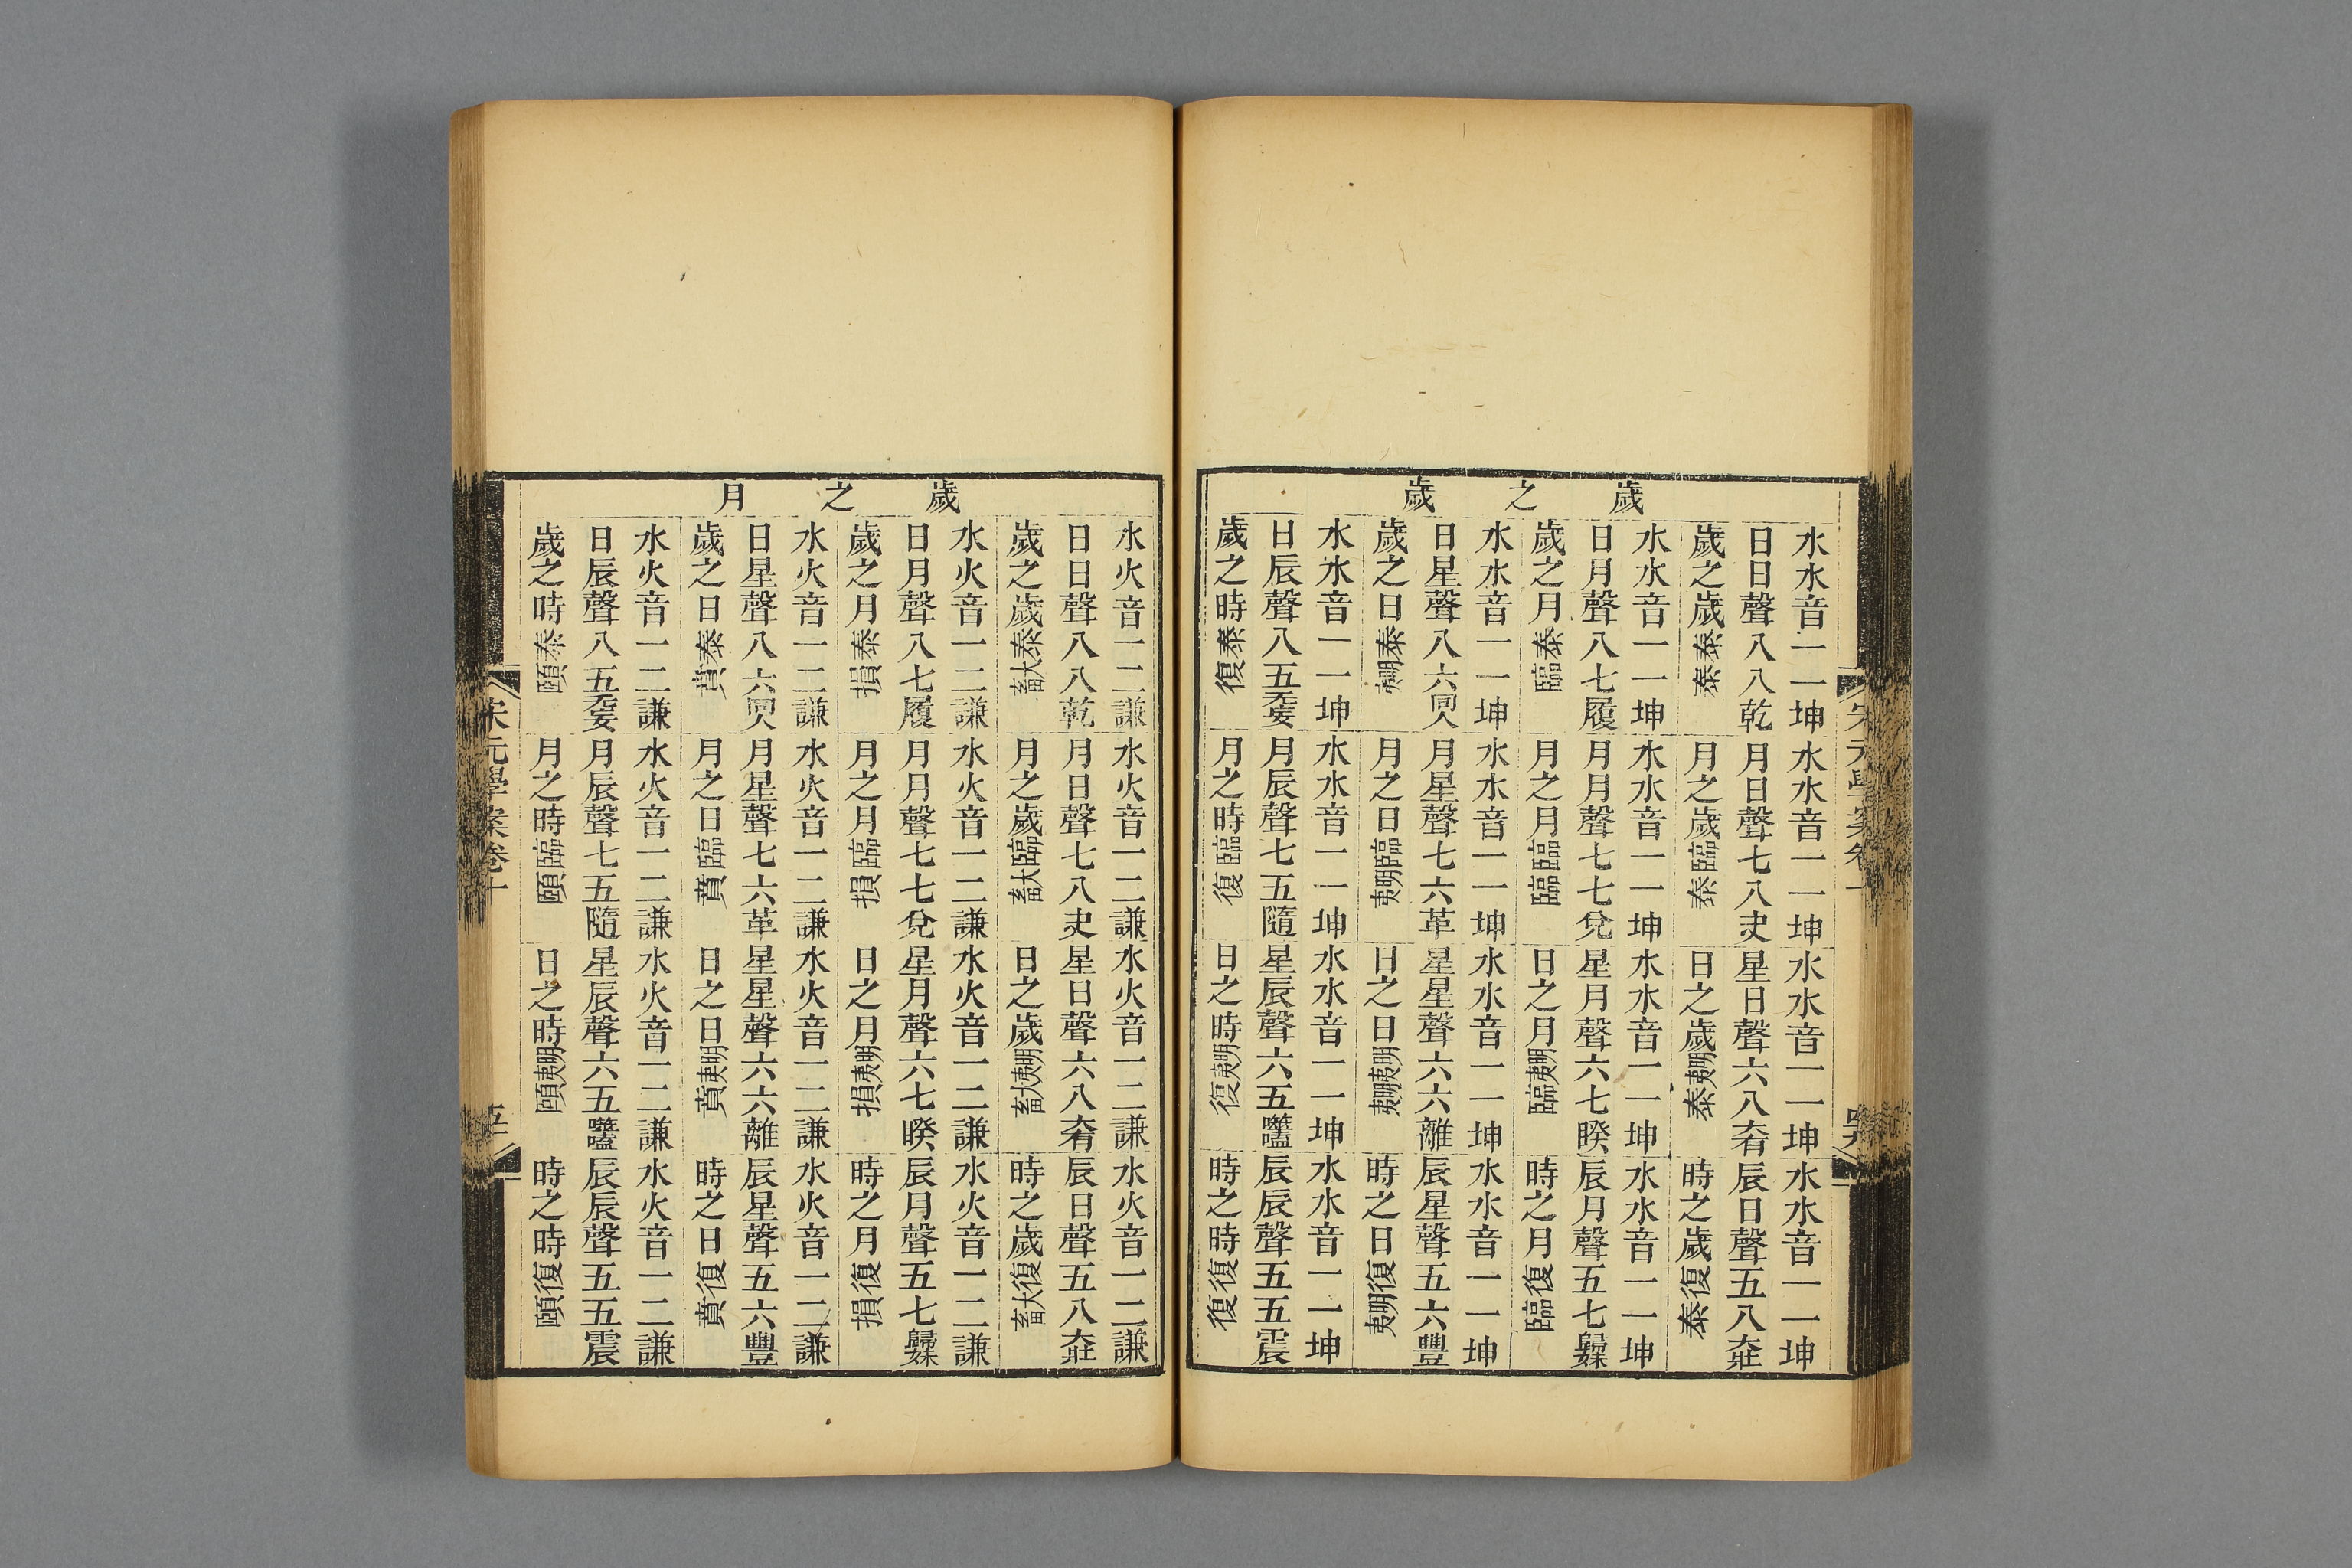 歲之歲
水水音一一坤水水音一一坤水水音一一坤水水音一一坤
日日聲八八乾月日聲七八夬星日聲六八大有辰日聲五八大壯
歲之歲泰泰月之歲臨泰日之歲明夷泰時之歲復泰
水水音一一坤水水音一一坤水水音一一坤水水音一一坤
日月聲八七履月月聲七七兌星月聲六七睽辰月聲五七歸妹
歲之月泰臨月之月臨臨日之月明夷臨時之月復臨
水水音一一坤水水音一一坤水水音一一坤水水音一一坤
日星聲八六同人月星聲七六革星星聲六六離辰星聲五六豐
歲之日泰明夷月之日臨明夷日之日明夷明夷時之日復明夷
水水音一一坤水水音一一坤水水音一一坤水水音一一坤
日辰聲八五无妄月辰聲七五隨星辰聲六五噬嗑辰辰聲五五震
歲之時泰復月之時臨復日之時明夷復時之時復復
歲之月
水火音一二謙水火音一二謙水火音一二謙水火音一二謙
日日聲八八乾月日聲七八夬星日聲六八大有辰日聲五八大壯
歲之歲泰大畜月之歲臨大畜日之歲明夷大畜時之歲復大畜
水火音一二謙水火音一二謙水火音一二謙水火音一二謙
日月聲八七履月月聲七七兌星月聲六七睽辰月聲五七歸妹
歲之月泰損月之月臨損日之月明夷損時之月復損
水火音一二謙水火音一二謙水火音一二謙水火音一二謙
日星聲八六同人月星聲七六革星星聲六六離辰星聲五六豐
歲之日泰賁月之日臨賁日之日明夷賁時之日復賁
水火音一二謙水火音一二謙水火音一二謙水火音一二謙
日辰聲八五无妄月辰聲七五隨星辰聲六五噬嗑辰辰聲五五震
歲之時泰頤月之時臨頤日之時明夷頤時之時復頤
宋元學案卷十